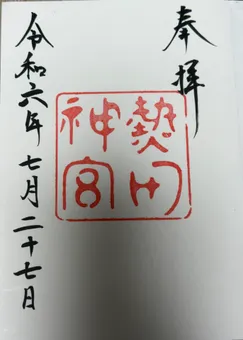 奉拝
熱田
神宮
令和六年七月二十七日